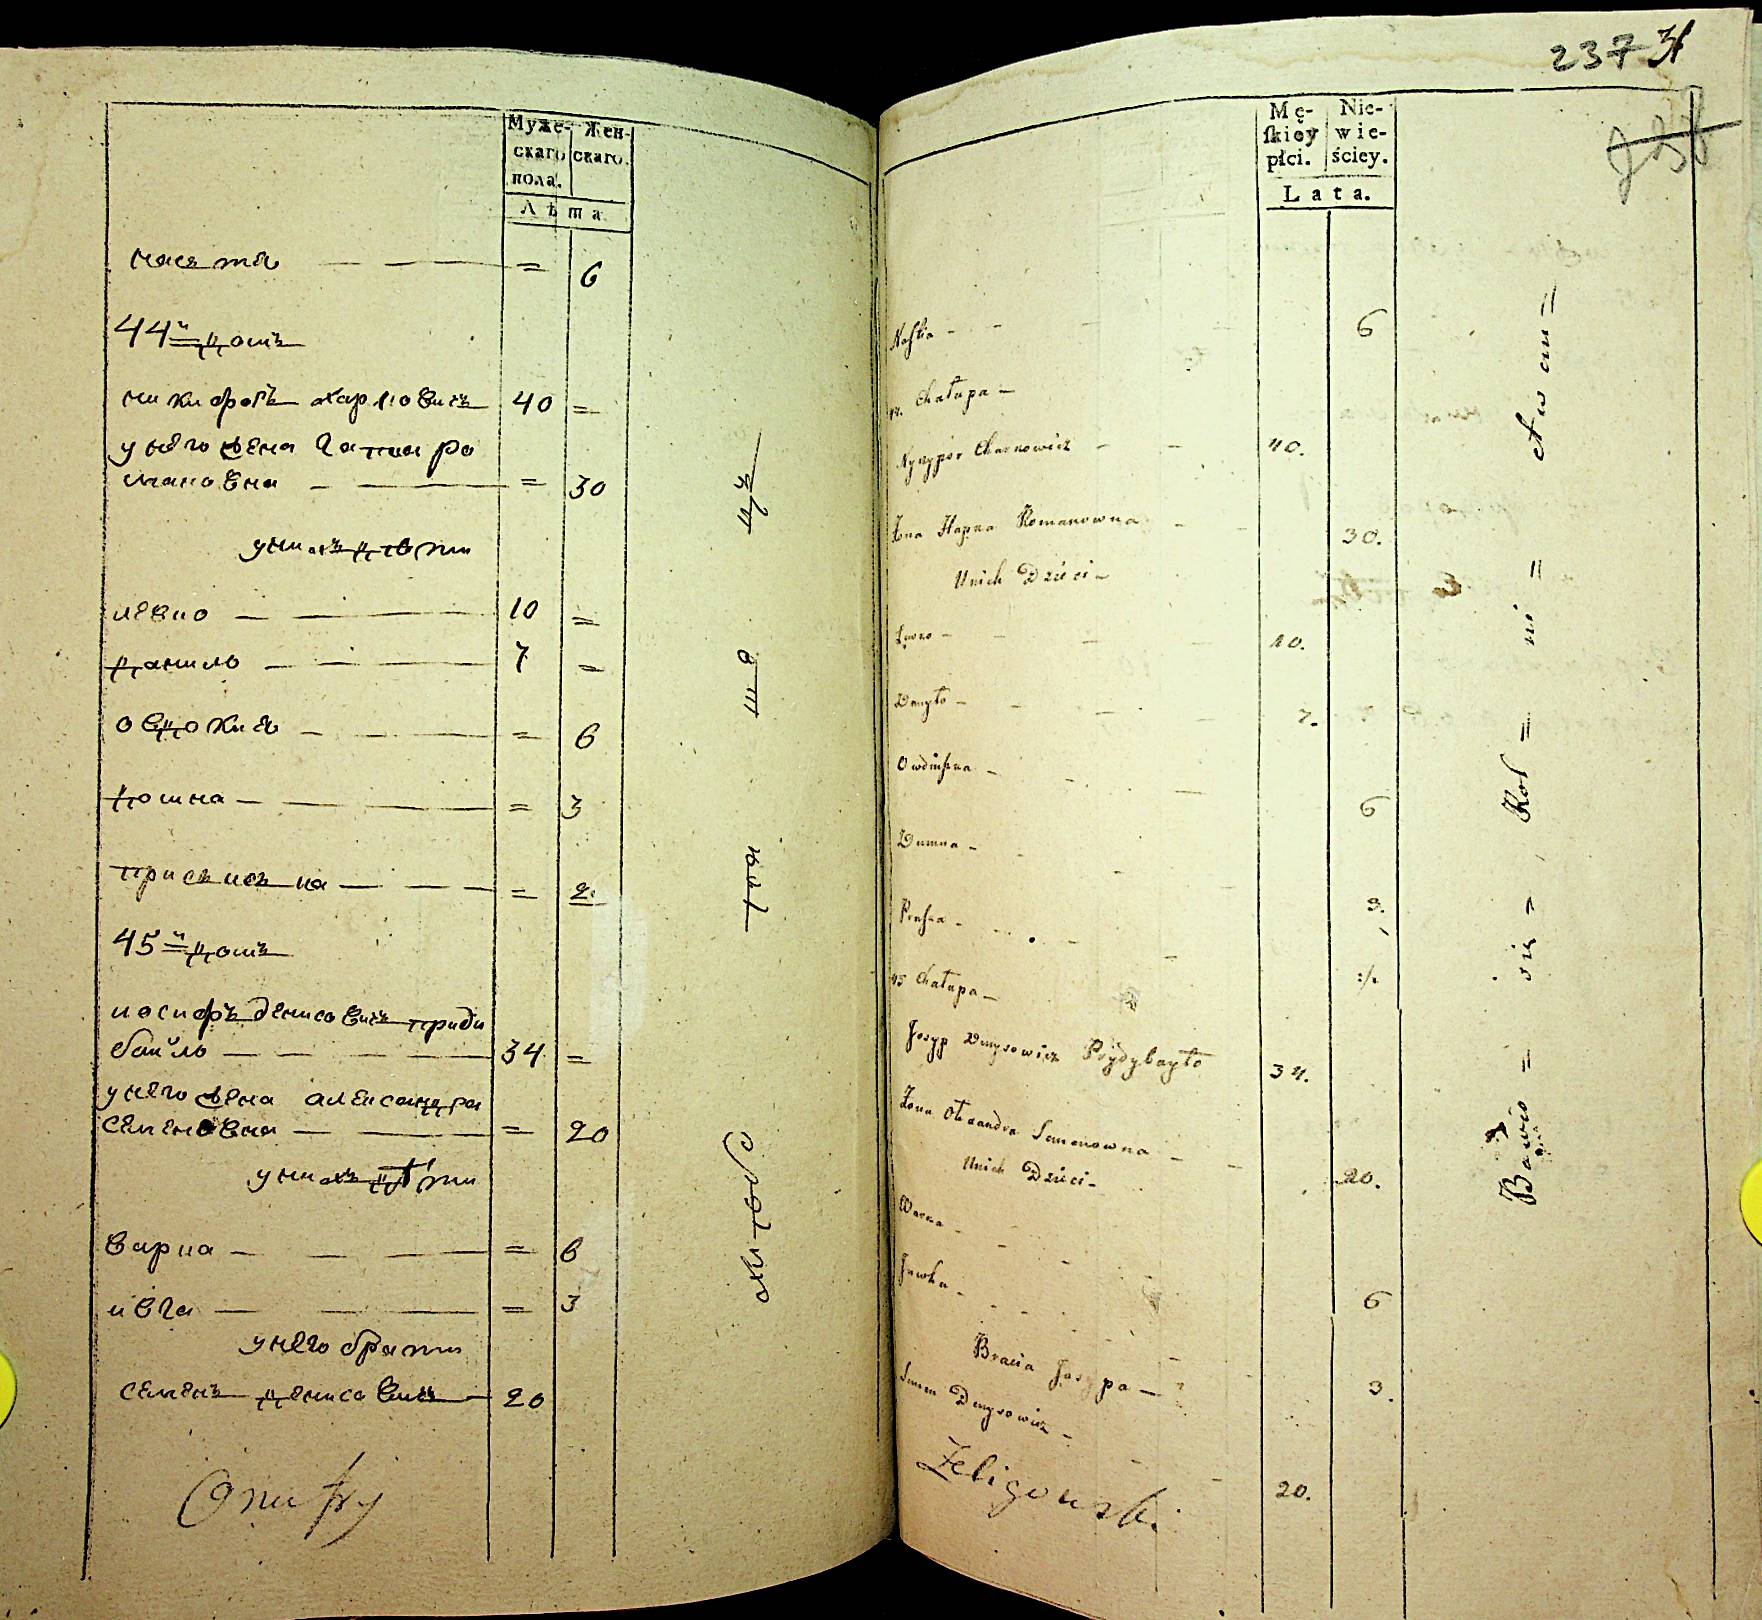 Муже-
скаго
пола.
Жен-
скаго.
Лѣта.
настя — — = 6
44й домъ
никифоръ харковичъ 40 =
у него жена гапка ро
мановна — — = 30
у нихъ дѣти
левко — — 10 =
данило — — — 7 =
овдокия — — — = 6
домна — — = 3
45й домъ
иосифъ денисовичъ приди
байло — — — — 34 =
у него жена александра
семеновна — — = 20
у нихъ дѣти
варка — — — = 6
ивга — — — = 3
у него брати
семенъ денисовичъ — 20
Onufry
237
Mę-
skiey
płci.
Nie-
wie-
ściey.
Lata.
Nastia - - - 6
44. Chałupa —
Nyzypor Charkowicz - - 40.
Żona Hapka Romanowna - - 30.
U nich Dzieci -
Lewko - - - 10.
Danyło - - - - 7.
Owdiuszka - - - 6
Dumna - - - 3.
45 Chałupa —
Josyp Denysowicz Prydybayło 34.
Żona Olexandra Semenowna - - 20.
U nich Dzieci -
Warka - - - 6
Jewka - - - - 3.
Bracia Josypa —
Semen Denysowicz - - - 20.
Żeligowski